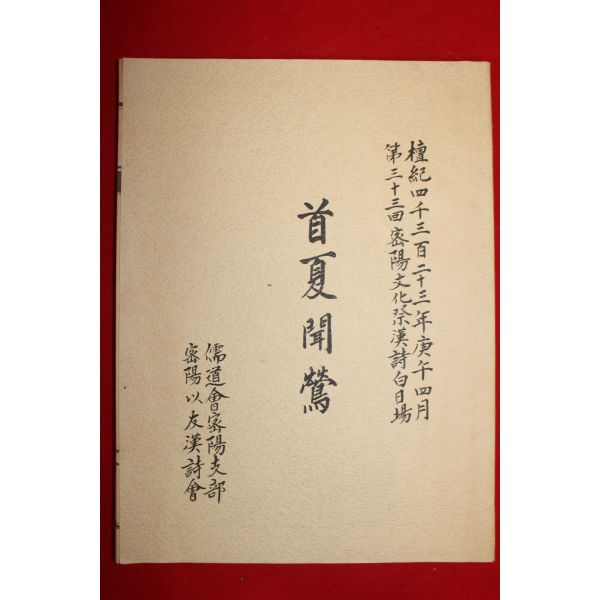 檀紀四千三百二十三年庚午四月
第三十三回密陽文化祭漢詩白日場
首夏聞鶯
儒道會密陽支部
密陽以友漢詩會